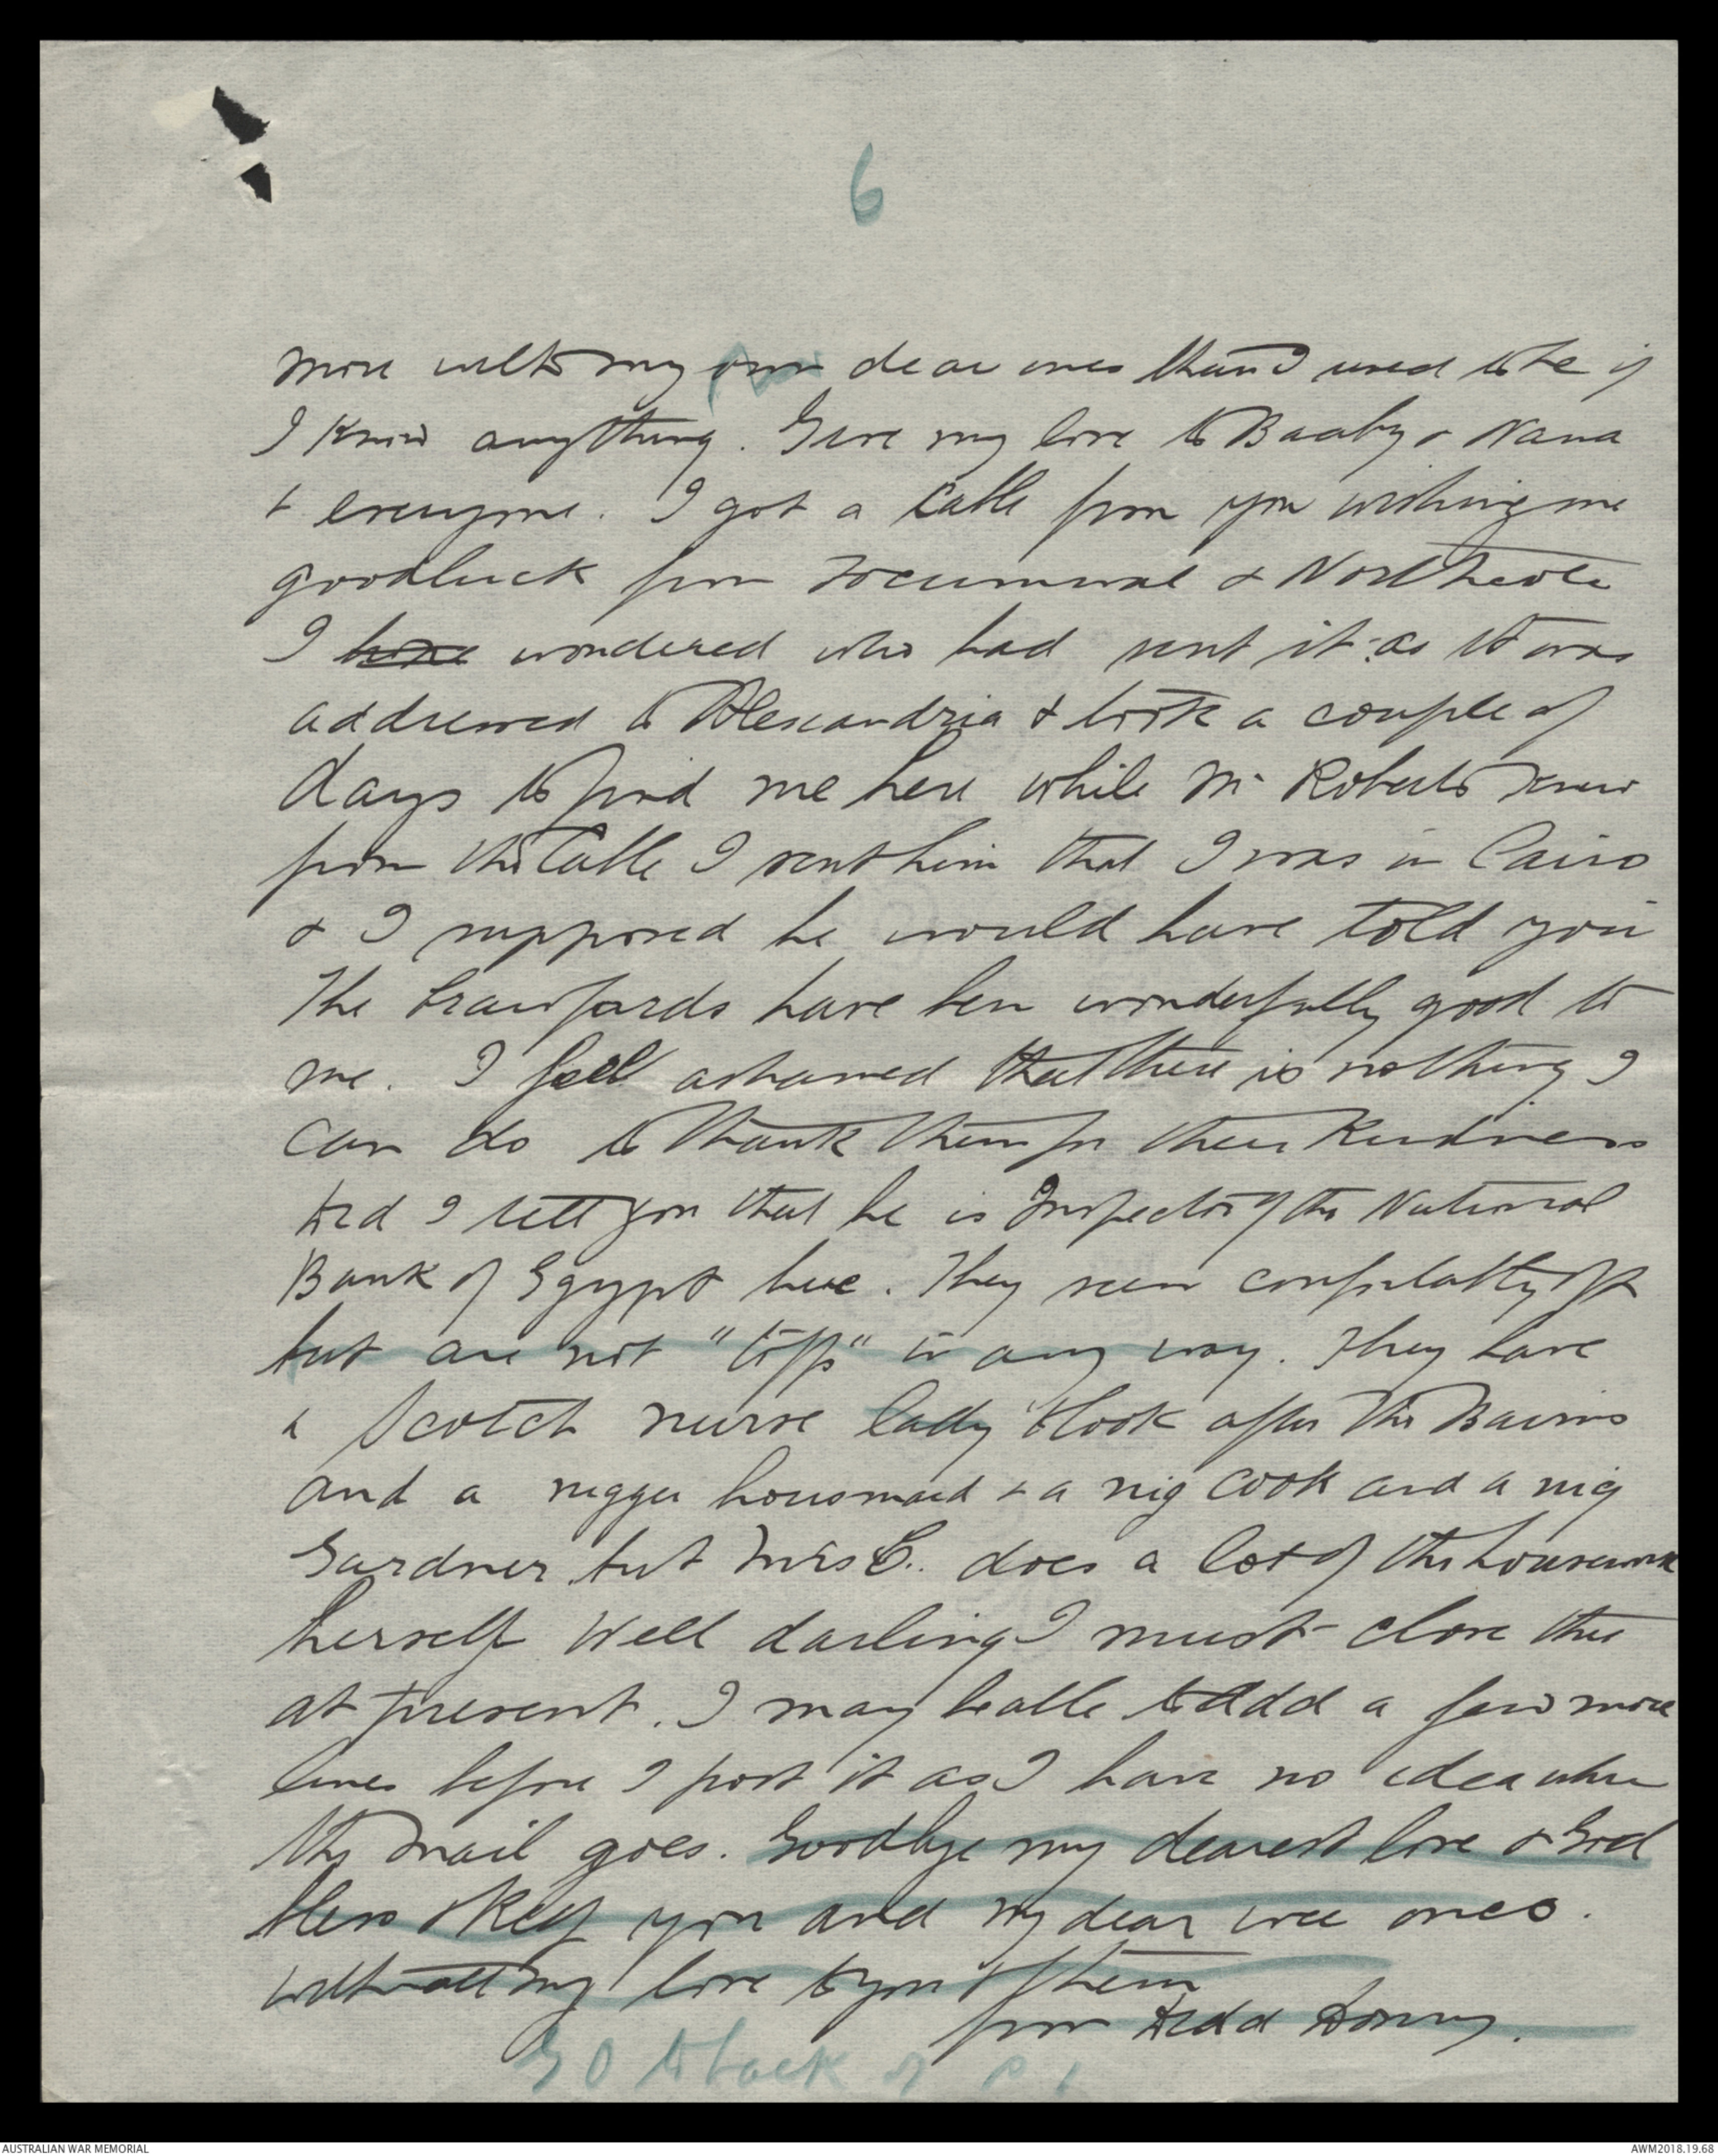 6
more with my own dear ones than I used to be if
I know anything. Give my love to Baaby & Nana
& everyone. I got a cable from you wishing me
goodluck from Tocumwal & Northcote
I have wondered who had sent it as it was
addressed to Alexandria & took a couple of
days to find me here while Mr Roberts knew
from the Cable I sent him that I was in Cairo
& I supposed he would have told you
The Crawfords have been wonderfully good to
me. I feel ashamed that there is nothing I
can do to thank them for their Kindness
Did I tell you that he is Inspector of the National
Bank of Egypt here. They seem comfortably off
but are not "toffs" in any way. They have
a Scotch nurse lady to look after the Bairns
and a nigger housmaid & a nig cook and a nig
Gardner but Mrs C. does a lot of the housework
herself Well darling I must close this
at present. I may be able to add a few more
lines before I post it as I have no idea when
the mail goes. Goodbye my dearest love & God
bless & keep you and my dear wee ones.
with all my love to you & them
from Dadda
GO to back of P 1
AUSTRALIAN WAR MEMORIAL
AWM2018.19.68